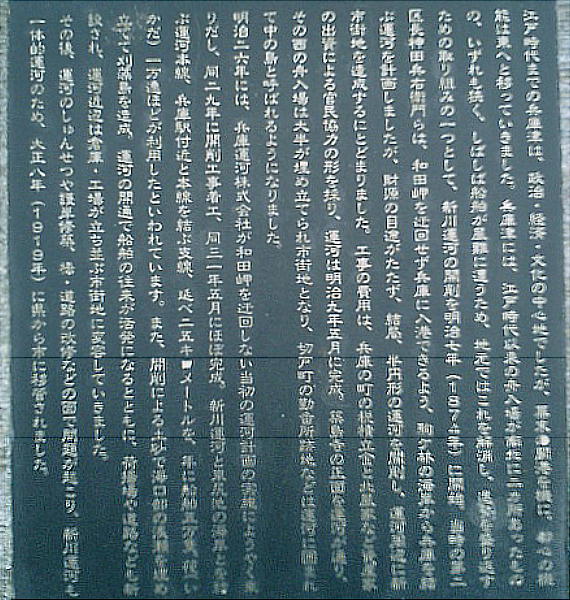 江戸時代までの兵庫津は、政治・経済・文化の中心地でしたが、幕末の開港を機に、都心の機
能は東へと移っていきました。兵庫津には、江戸時代以来の舟入場が南北に二カ所あったもの
の、いずれも狭く、しばしば船舶が災難に遭うため、地元ではこれを解消し、
ための取り組みの一つとして、新川運河の開削を明治七年(1874年)に開始。当時の第二
区長神田兵右衛門らは、和田岬を迂回せず兵庫に入港できるよう、駒ケ林の海岸から兵庫を結
ぶ運河を計画しましたが、財源の目途がたたず、結局、半円形の運河を開削し、運河周辺に新
市街地を造成するにとどまりました。工事の費用は、兵庫の町の
の出資による官民協力の形を採り、運河は明治九年五月に完成。築島寺の正面を運河が通り、
その西の舟入場は大半が埋め立てられ市街地となり、切戸町の勤番所跡地などは運河に囲まれ
て中の島と呼ばれるようになりました。
明治二六年には、兵庫運河株式会社が和田岬を迂回しない当初の運河計画の実現にようやく乗
りだし、同二九年に開削工事着工、同三一年五月にほぼ完成。新川運河と東尻池の海岸とを結
ぶ運河本線、兵庫駅付近と本線を結ぶ支線、延べ二五キロメートルを、年に船舶五万隻、筏(い
かだ)一万連ほどが利用したといわれています。また、開削による土砂で海口部の浅瀬を埋め
立てて苅藻島を造成、運河の開通で船舶の往来が活発になるとともに、荷揚場や道路なども新
設され、運河近辺は倉庫・工場が立ち並ぶ市街地に変容していきました。
その後、運河のしゅんせつや護岸修築、橋・道路の改修などの面で問題が起こり、新川運河と
一体的運河のため、大正八年(1919年)に県から市に移管されました。